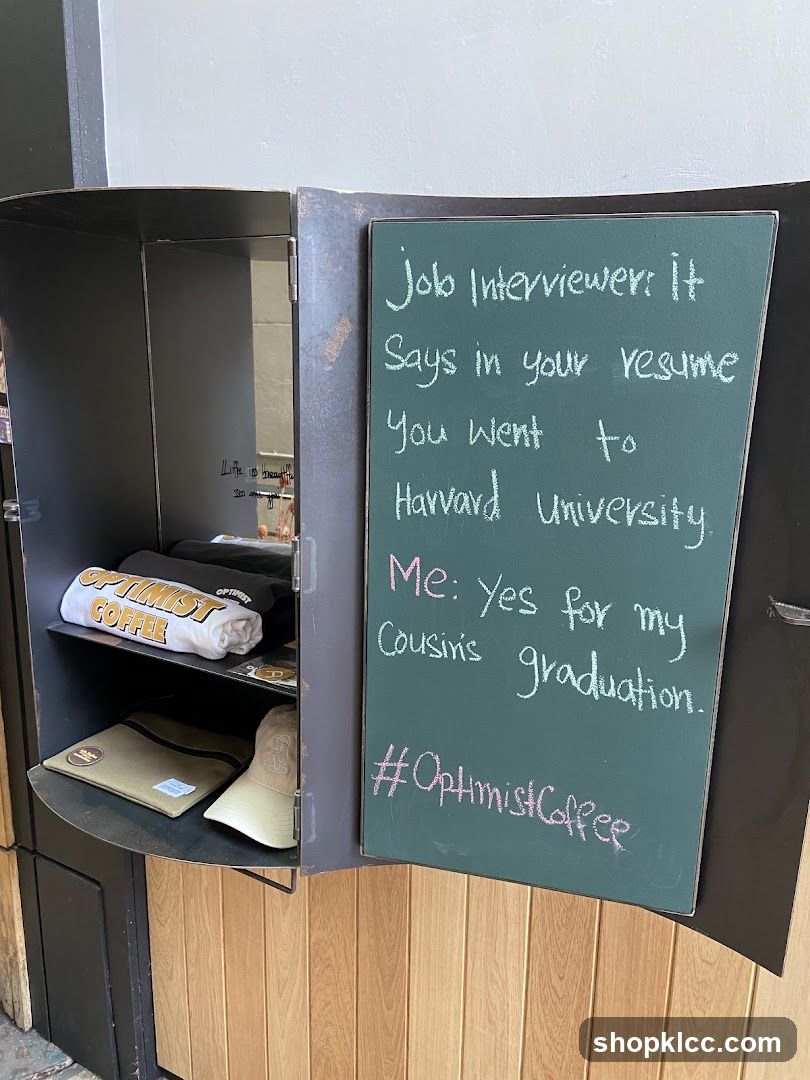 Job Interviewer: It
Says in your resume
You Went to
Harvard University
Me: Yes for my
Cousin's graduation.
#OptimistCoffee
OPTIMIST
COFFEE
OPTIMIST
shopklcc.com